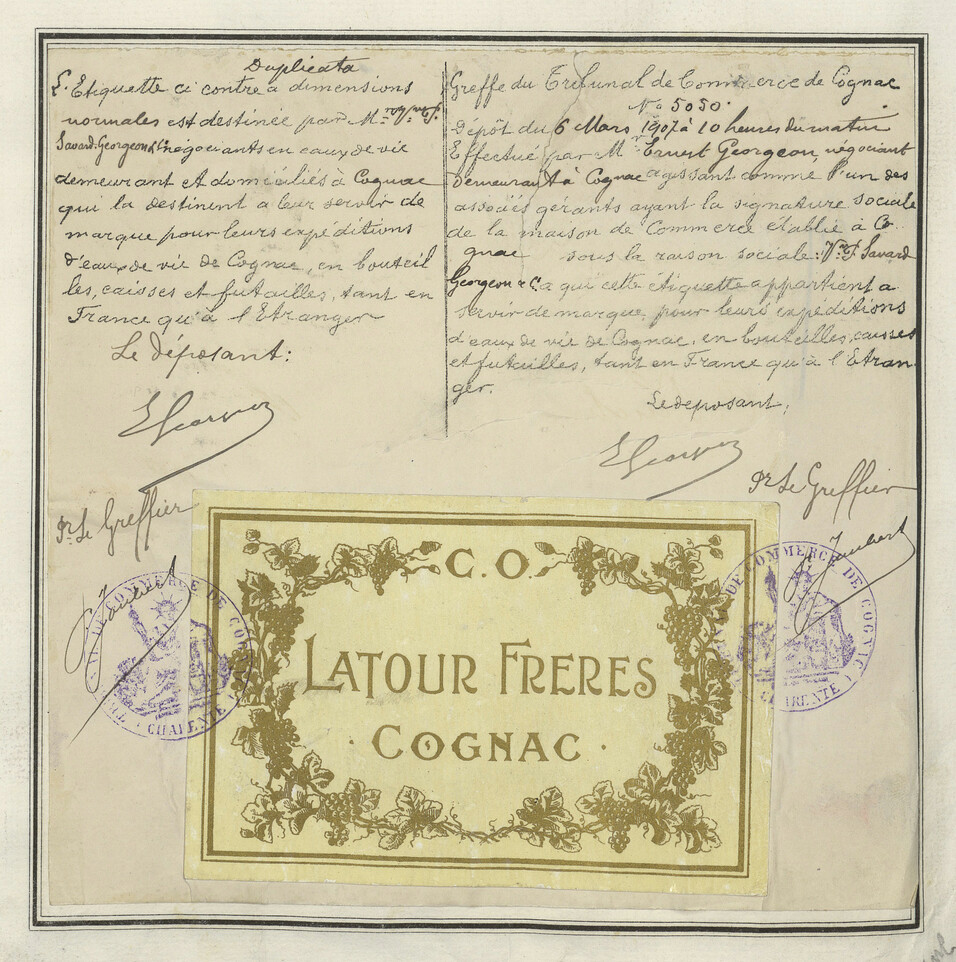 Duplicata
L'Etiquette ci contre à dimensions
normales est destinée par M
Savard-Georgeon & Cie négociants en eaux de vie
demeurant et domiciliés à Cognac
qui la destinent a leur servir de
marque pour leurs expéditions
d'eaux de vie de Cognac, en bouteil
les, caisses et futailles, tant en
France qu'à l'Etranger
Le déposant:
E Georgeon
Pr. Le Greffier
Greffe du Tribunal de Commerce de Cognac
No 5050.
Dépôt du 6 Mars 1907 à 10 heures du matin
Effectué par Mr Ernest Georgeon, négociant
demeurant à Cognac agissant comme l'un des
associés gérants ayant la signature sociale
de la maison de Commerce établie à Co
gnac sous la raison sociale: Vve P. Savard
Georgeon & Cie a qui cette étiquette appartient a
servir de marque pour leurs expéditions
d'eaux de vie de Cognac, en bouteilles, caisses
et futailles, tant en France qu'à l'Etran
ger.
Le deposant,
E Georgeon
Pr Le Greffier
Jaubert
Jaubert
TRIBUNAL DE COMMERCE DE COGNAC
CHARENTE
C.O.
LATOUR FRERES
· COGNAC ·
DE COMMERCE DE COGNAC
CHARENTE